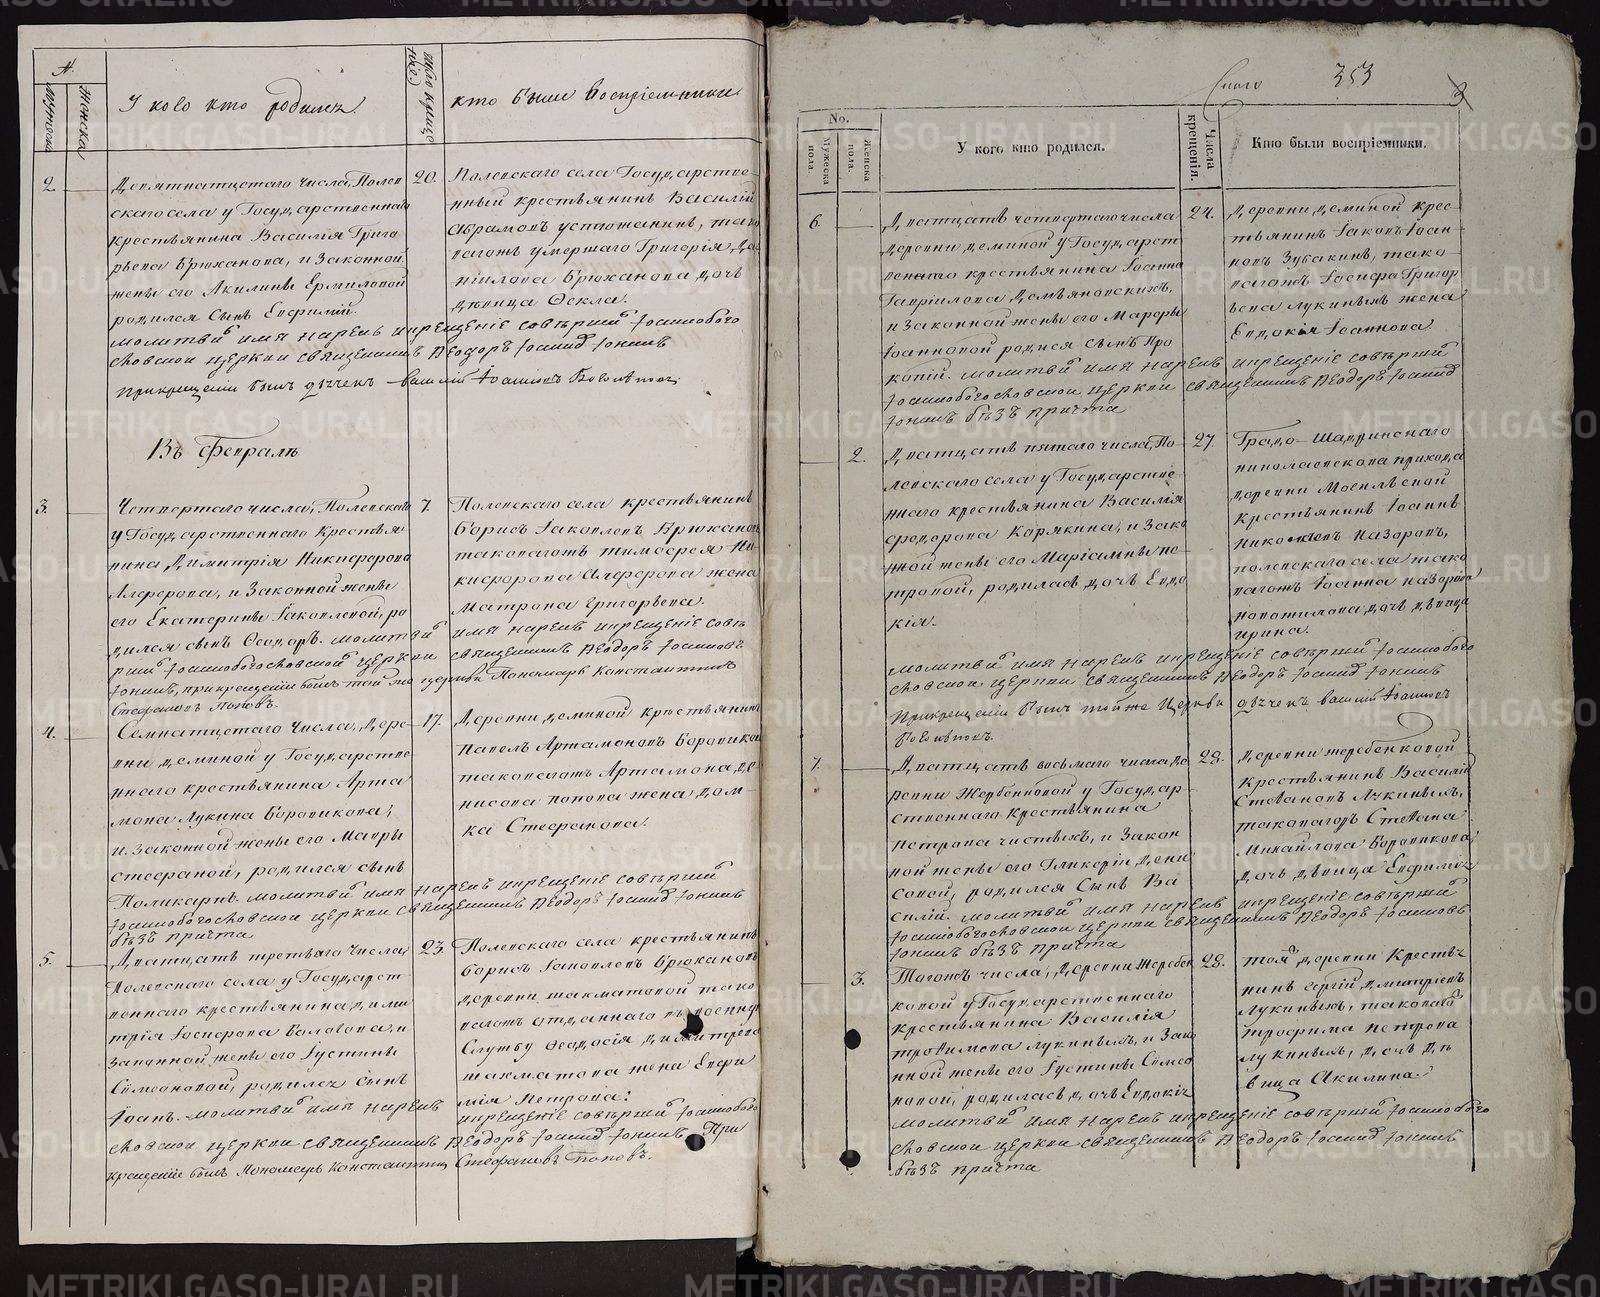 №.
Мужеска
Женска
У кого кто родился.
Число крещенія
кто были восприемники
2.
Девятнатцатаго числа, Полев
скаго села у Государственнаго
крестьянина Василія Григо
рьева Брюханова, и Законной
жены его Акилины Ермиловой
родился Сынъ Евфимій.
20.
Полевскаго села Государстве-
нный крестьянинъ Василій
Абрамовъ устюженинъ, тако
вагожъ умершаго Григорія, Да
ніилова Брюханова дочь
Дѣвица Ѳекла.
молитвой имя нареԿъ и крещеніе совѣршилъ Іоаннобого
словской церкви священникъ Ѳеодоръ Іоаннъ Іонинъ
прикрещеніи былъ дьячекъ василій Іоанновъ
Въ Февралѣ
3.
Четвертаго числа, Полевскаго
у Государственнаго Крестья
нина Димитрія Никифорова
Алферова, и Законной жены
его Екатерины Іаковлевой, ро
дился сынъ Ѳеодоръ.
7.
Полевскаго села крестьянинъ
Борисъ Іаковлевъ Брюхановъ
таковагожъ тимоѳея Ни
кифорова Алферова жена
Матрона григорьева.
молитвой имя нарекъ и крещеніе совѣ
ршилъ Іоаннобогословской церкви священникъ Ѳеодоръ Іоанновъ
Іонинъ, прикрещеніи былъ той же церкви Пономарь Константинъ
Стефановъ Поповъ.
4.
Семнатцатаго Числа, Дере-
вни деминой у Государстве
ннаго крестьянина Арта
мона Лукина Боровикова,
и Законной жены его Мавры
стефаной, родился сынъ
Поликарпъ.
17.
Деревни деминой крестьянинъ
Павелъ Артамоновъ Боровиков
таковагожъ Артамона де
нисова попова жена Дом-
ка Стефанова.
молитвой имя нарекъ и крещеніе совѣршилъ
Іоаннобогословской церкви священникъ Ѳеодоръ Іоаннъ Іонинъ
бѣзъ причта
5.
Дватцать третьяго Числа,
Полевскаго села у Государст
веннаго крестьянина дими
трія Іосифова Бологова, и
Законной жены его Іустины
Сѵмеоновой, родился сынъ
Іоанъ.
23.
Полевскаго села крестьянинъ
Борисъ Іаковлевъ Брюхановъ
деревни шахматовой тако
вагожъ отданнаго въ военну
Службу Ѳеодосія Димитріева
шахматова жена Евфи
мія Петрова.
молитвой имя нарекъ и крещеніе совѣршилъ Іоаннобого
словской церкви священникъ Ѳеодоръ Іоаннъ Іонинъ При
крещеніи былъ Пономарь Константинъ Стефановъ Поповъ.
353
No.
Мужеска пола.
Женска пола.
У кого кто родился.
Числа крещенія.
Кто были воспріемники.
6.
Дватцать четвертаго числа
деревни деминой у Государст
веннаго крестьянина Іоанна
Гавріилова Демьяновскихъ,
и Законной жены его Марфы
Іоанновой родися сынъ Про
копій.
24.
Деревни деминой крес-
тьянинъ Іаковъ Іоан-
новъ Зубакинъ, тако-
вагожъ Іосифа Григор
ьева лукиныхъ жена
Евдокія Іоаннова.
молитвой имя нарекъ и крещеніе совѣршилъ
Іоаннобогословской церкви священникъ Ѳеодоръ Іоаннъ
Іонинъ бѣзъ причта
2.
Дватцать пятаго числа, По-
левскаго села у Государстве-
ннаго крестьянина Василія
федорова Карякина, и Зако
нной жены его Маріамны пе
тровой, родилась дочь Евдо
кія.
27.
Градо-Шадринскаго
николаевскова прихода
деревни Могильской
Крестьянинъ Іоаннъ
Никоновъ Назаровъ,
полевскаго села тако
вагожъ Іоанна назарова
дочь дѣвица
ирина.
молитвой имя нарекъ и крещеніе совѣршилъ Іоаннобого
словской церкви священникъ Ѳеодоръ Іоаннъ Іонинъ
Прикрещеніи былъ тойже Церкви дьячекъ василій Іоанновъ
7.
Дватцать восьмаго числа де
ревни Жеребенковой у Государ-
ственнаго Крестьянина
петрова чистыхъ, и Закон
ной жены его Гликеріи Дени
совой, родился Сынъ Ва
силій.
28.
Деревни жеребенковой
Крестьянинъ Василій
Стеѳановъ Лукиныхъ,
таковагожъ Стеѳана
Михайлова Боровикова
дочь дѣвица Евфимія
молитвой имя нарекъ и крещеніе совѣршилъ
Іоаннобогословской церкви священникъ Ѳеодоръ Іоанновъ
Іонинъ бѣзъ причта
3.
Тогожъ числа, Деревни Жеребен
ковой у Государственнаго
крестьянина Василія
троѳимова лукиныхъ, и Зако
нной жены его Іустины Сѵмео
новой, родилась дочь Евдокія
28.
той деревни Крестья
нинъ сергій димитріевъ
Лукиныхъ, таковагожъ
трофима петрова
лукиныхъ, дочь дѣ
вица Акилина.
молитвой имя нарекъ и крещеніе совѣршилъ Іоаннобого
словской церкви священникъ Ѳеодоръ Іоаннъ Іонинъ
бѣзъ причта
METRIKI.GASO-URAL.RU